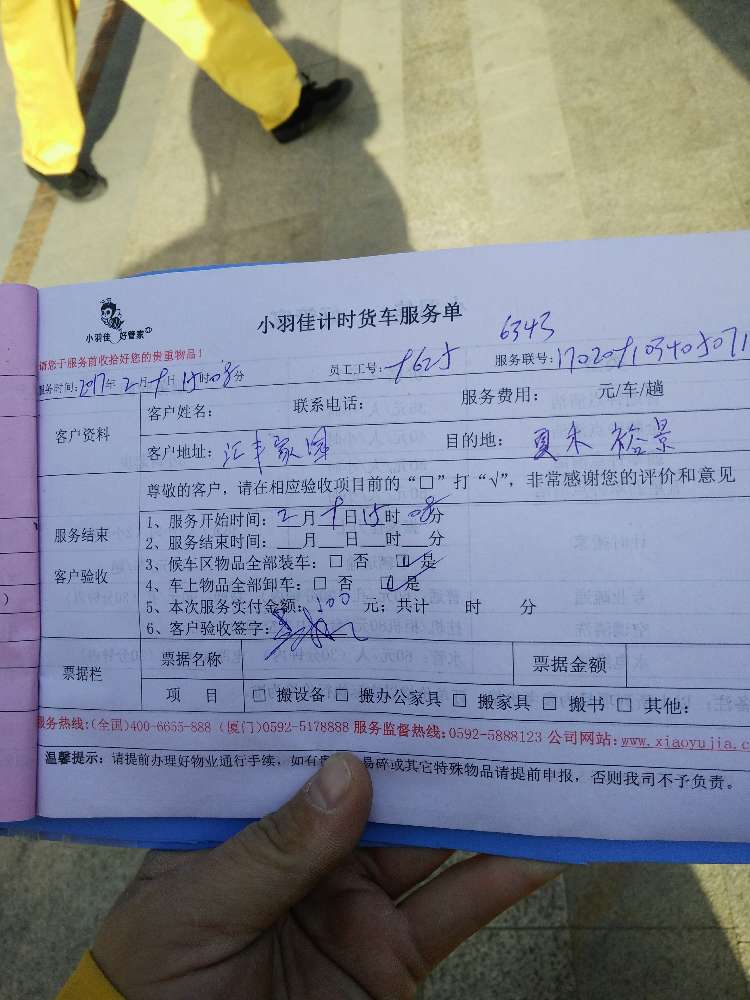 小羽佳 好管家
小羽佳计时货车服务单
请您于服务前收拾好您的贵重物品!
6343
服务时间:2017年2月 日15时08分 员工工号: 服务联号:
客户资料
客户姓名: 联系电话: 服务费用: 元/车/趟
客户地址:汇丰家园 目的地:夏禾裕景
服务结束
客户验收
尊敬的客户，请在相应验收项目前的“□”打“√”，非常感谢您的评价和意见
1、服务开始时间:2月 日15时08分
2、服务结束时间:___月___日___时___分
3、候车区物品全部装车: □ 否 ☑ 是
4、车上物品全部卸车: □ 否 ☑ 是
5、本次服务实付金额: 元;共计 时 分
6、客户验收签字:
票据栏
票据名称 票据金额
项 目 □ 搬设备 □ 搬办公家具 □ 搬家具 □ 搬书 □ 其他:
服务热线:(全国)400-6655-888 (厦门)0592-5178888 服务监督热线:0592-5888123 公司网站:www.xiaoyujia.c
温馨提示: 请提前办理好物业通行手续，如有 易碎或其它特殊物品请提前申报，否则我司不予负责。